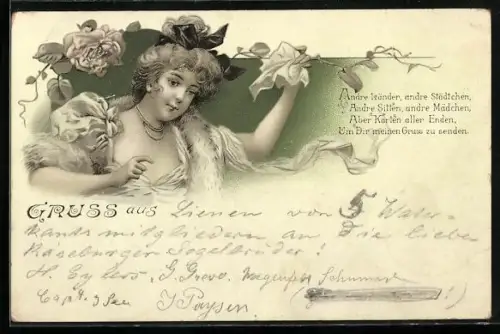 Andre Länder, andre Städtchen,
Andre Sitten, andre Mädchen,
Aber Karten aller Enden,
Um Dir meinen Gruss zu senden.
GRUSS aus Lienen von 5 Water-
kantsmitgliedern an die lieben
Segelbrüder!
H. Eylers, G. Greve, Schumacher
Capt. 3 See J Paysen